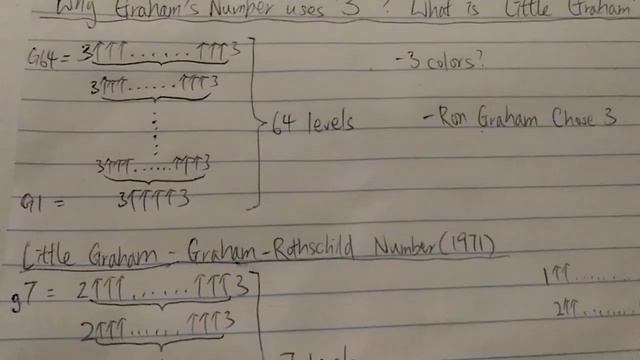 Why Graham's Number uses 3? What is Little Graham
G64 = 3↑↑↑......↑↑↑3
3↑↑↑......↑↑↑3
3↑↑↑......↑↑↑3
G1 = 3↑↑↑↑3
64 levels
-3 colors?
-Ron Graham Chose 3
Little Graham - Graham-Rothschild Number (1971)
g7 = 2↑↑↑......↑↑↑3
2↑↑↑......↑↑↑3
7 levels
1↑↑......
2↑↑......